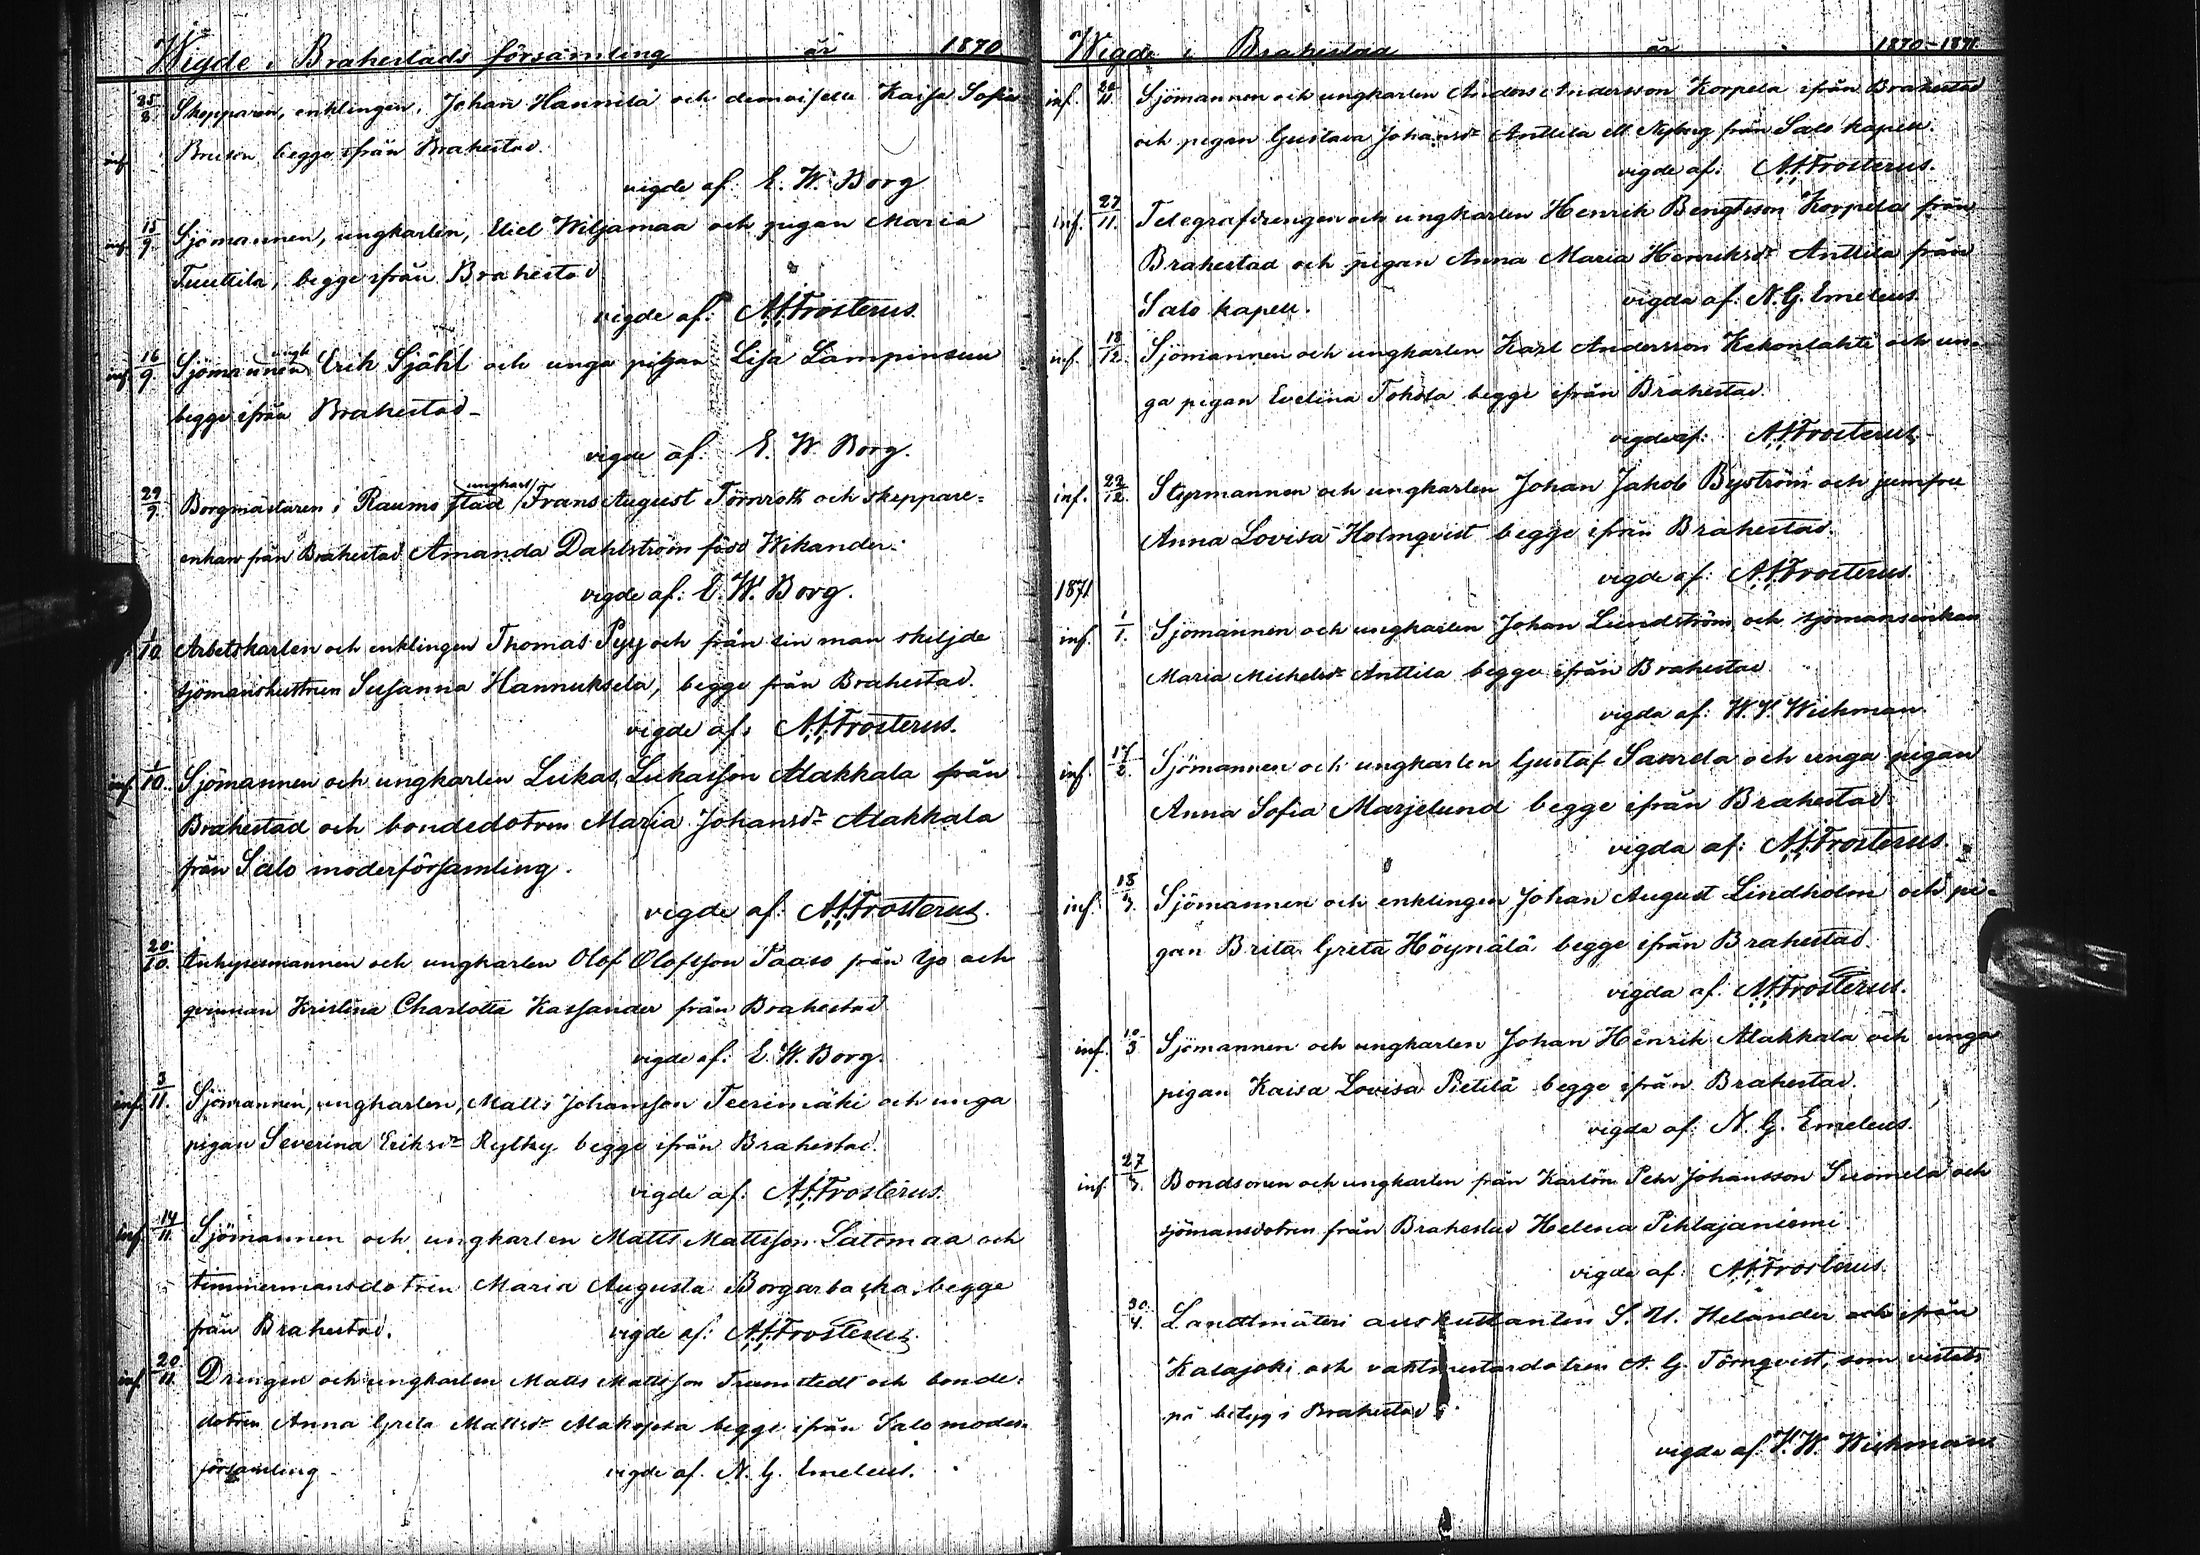 Wigde i Brahestads församling år 1870
25/8 Skepparen, enklingen, Johan Hannila och demoiselle Kaisa Sofia
inf. Bruson begge ifrån Brahestad.
vigde af: E. W. Borg
inf. 15/9. Sjömannen, ungkarlen, Eliel Wiljamaa och pigan Maria
Tuuttila, begge ifrån Brahestad
vigde af: Frosterus.
inf. 16/9. Sjömannen ungk Erik Sjöhl och unga pigan Lisa Lampinsuu
begge ifrån Brahestad
vigde af. E. W. Borg.
29/9. Borgmästaren i Raumo stad ungkarl Frans August Törnroth och skeppare-
enkan från Brahestad Amanda Dahlström född Wikander.
vigde af: E. W. Borg.
1/10 Arbetskarlen och enklingen Thomas Pyy och från sin man skiljde
sjömanshustrun Susanna Hannuksela, begge från Brahestad.
vigde af: Frosterus.
inf. 1/10. Sjömannen och ungkarlen Lukas Lukasson Alakkala från
Brahestad och bondedotren Maria Johansdr Alakkala
från Salo moderförsamling.
vigde af: Frosterus.
20/10. och ungkarlen Olof Olofsson Paaso från Ijo och
qvinnan Kristina Charlotta Kassander från Brahestad
vigde af: E. W. Borg.
inf. 3/11. Sjömannen, ungkarlen, Matts Johansson Teerimäki och unga
pigan Severina Eriksdr Rytky begge ifrån Brahestad.
vigde af: Frosterus.
inf. 14/11 Sjömannen och ungkarlen Matts Mattsson Latomaa och
timmermansdotren Maria Augusta Borgarbacka, begge
från Brahestad. vigde af: Frosterus.
inf. 20/11. Drengen och ungkarlen Matts Mattsson och bonde-
dotren Anna Greta Mattsdr begge ifrån Salo moder-
församling vigde af. N. G. Emeleus.
Wigde i Brahestad år 1870-1871.
inf. 20/11. Sjömannen och ungkarlen Anders Andersson Korpela ifrån Brahestad
och pigan Gustava Johansdr Anttila ell. Nyberg från Salo kapell.
vigde af: Frosterus.
inf. 27/11. Telegrafdrengen och ungkarlen Henrik Bengtsson Korpela från
Brahestad och pigan Anna Maria Henriksdr Anttila från
Salo kapell. vigda af: N. G. Emeleus.
inf. 18/12. Sjömannen och ungkarlen Karl Andersson Kekonlahti och un-
ga pigan Evelina Tokola begge ifrån Brahestad.
vigde af: Frosterus.
inf. 22/12. Styrmannen och ungkarlen Johan Jakob Byström och jumfru
Anna Lovisa Holmqvist begge ifrån Brahestad.
vigde af: Frosterus.
1871
inf. 1/1. Sjömannen och ungkarlen Johan Lundström och sjömansenkan
Maria Michelsdr Anttila begge ifrån Brahestad
vigda af: W. V. Wichman.
inf. 17/2. Sjömannen och ungkarlen Gustaf Saarela och unga pigan
Anna Sofia Marjelund begge ifrån Brahestad
vigda af: Frosterus.
inf. 18/3. Sjömannen och enklingen Johan August Lindholm och pi-
gan Brita Greta Höynälä begge ifrån Brahestad.
vigda af. Frosterus.
inf. 10/3 Sjömannen och ungkarlen Johan Henrik Alakkala och unga
pigan Kaisa Lovisa Pietilä begge ifrån Brahestad.
vigde af: N. G. Emeleus.
inf. 27/3. Bondsonen och ungkarlen från Karlön Petr Johansson Suomela och
sjömansdotren från Brahestad Helena Pihlajaniemi
vigde af: Frosterus.
30/4. Landtmäteri auskultanten S. U. Helander och ifrån
Kalajoki och vaktmestardotren A. G. Törnqvist, som vistats
på betyg i Brahestad.
vigde af: V. W. Wichmann